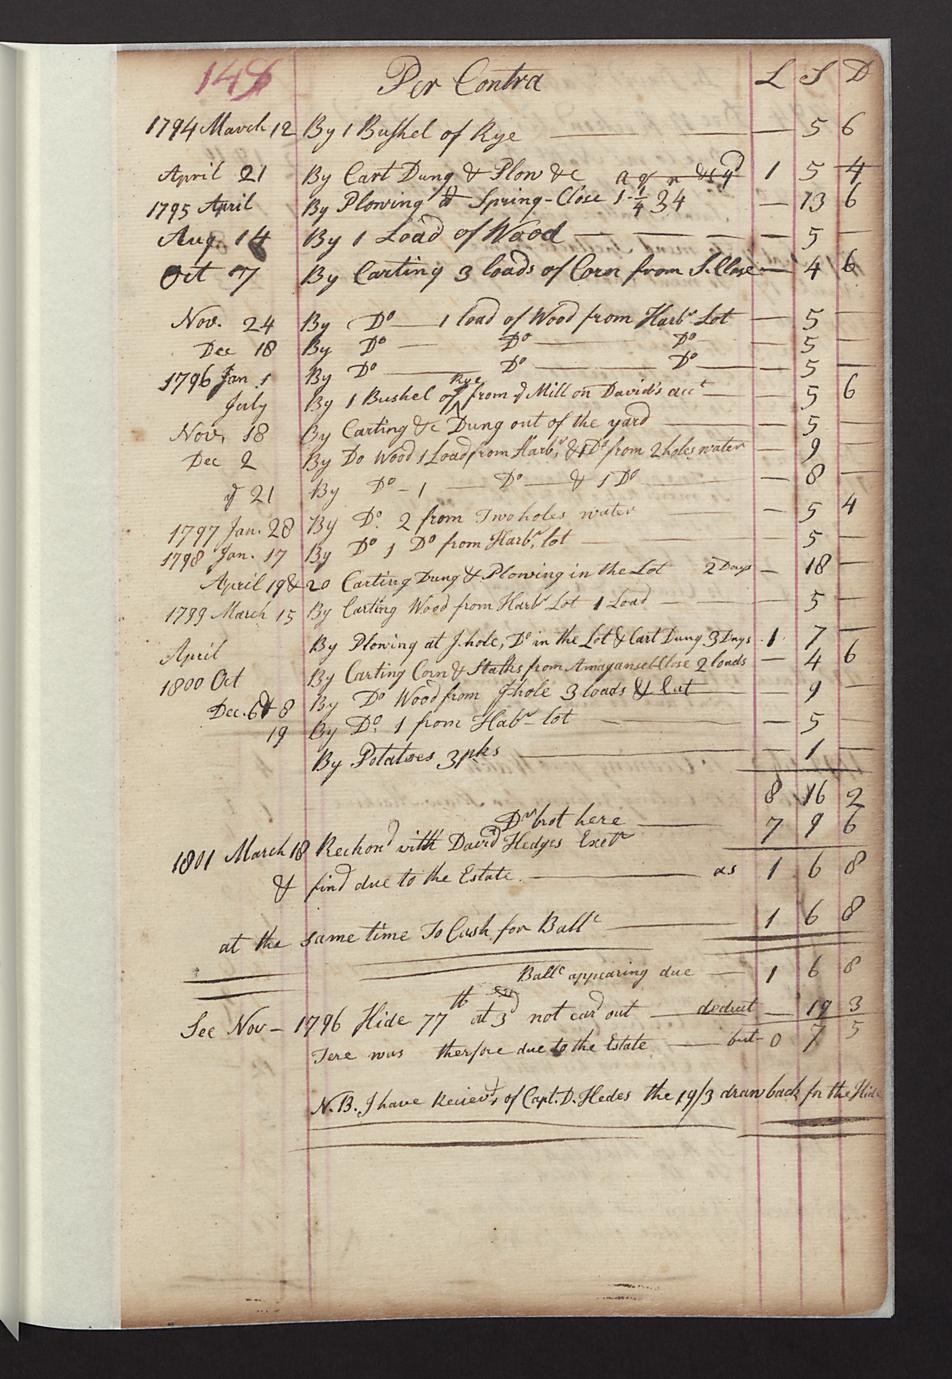 148 Per Contra L S D
1794 March 12 By 1 Bushel of Rye — 5 6
April 21 By Cart Dung & Plow &c 1 5 4
1795 April By Plowing at Spring-Close 1-1/4 34 — 13 6
Aug. 14 By 1 Load of Wood — 5 —
Oct 7 By Carting 3 loads of Corn from S. Close — 4 6
Nov. 24 By Do 1 load of Wood from Harbr Lot — 5 —
Dec 18 By Do — Do — Do — 5 —
1796 Jan. 1 By Do — Do — Do — 5 —
July By 1 Bushel of Rye from ye Mill on David's acct — 5 6
Nov. 18 By Carting &c Dung out of the yard — 5 —
Dec 2 By Do Wood 1 Load from Harbr, & 1 Do from 2 holes water — 9 —
ye 21 By Do — 1 — Do — & 1 Do — 8 —
1797 Jan. 28 By Do. 2 from Twoholes water — 5 4
1798 Jan. 17 By Do 1 Do from Harbr. lot — 5 —
April 19 & 20 Carting Dung & Plowing in the Lot 2 Days — 18 —
1799 March 15 By Carting Wood from Harbr Lot 1 Load — 5 —
April By Plowing at J. hole, Do in the Lot & Cart Dung 3 Days 1 7 —
1800 Oct By Carting Corn & Stalks from Amaganset Close 2 loads — 4 6
Dec. 6 & 8 By Do Wood from Jhole 3 loads & cut — 9 —
19 By Do. 1 from Habr lot — 5 —
By Potatoes 3 pks — 1 —
8 16 2
Dr brot here — 7 9 6
1801 March 18 Reckond with David Hedges Exetr
& find due to the Estate — as 1 6 8
at the same time To Cash for Ballc — 1 6 8
Ballc appearing due — 1 6 8
See Nov — 1796 Hide 77 th at 3d not card out — deduct — 19 3
Tere was therfore due to the Estate — but — 0 7 5
N.B. I have Reciev'd of Capt. D. Hedes the 19/3 drawback for the Hide